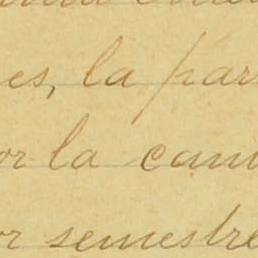 es, la par
or la can
or semestre